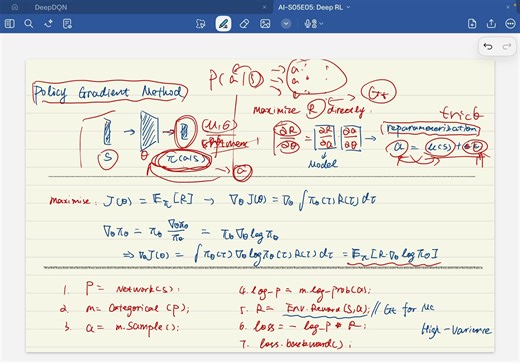 DeepDQN
AI-S05E05: Deep RL
Policy Gradient Method
P(a|s)
a
maximize R directly.
Gt
trick
reparameterization
S
θ
(μ, σ)
π(a|s)
a
∂R/∂θ = [∂R/∂a] [∂a/∂θ]
Model
a = μ(s) + σ·ε
maximise: J(θ) = 𝔼π[R] → ∇θ J(θ) = ∇θ ∫ πθ(τ) R(τ) dτ
∇θ πθ = πθ ∇θπθ/πθ = πθ ∇θ log πθ
⇒ ∇θ J(θ) = ∫ πθ(τ) ∇θ log πθ(τ) R(τ) dτ = 𝔼π[R·∇θ log πθ]
1. P = Network(s);
2. m = Categorical (p);
3. a = m.sample();
4. log-p = m.log-prob(a);
5. R = Env.Reward(s,a); // Gt for MC
6. loss = - log-p * R;
7. loss.backward();
High-Variance